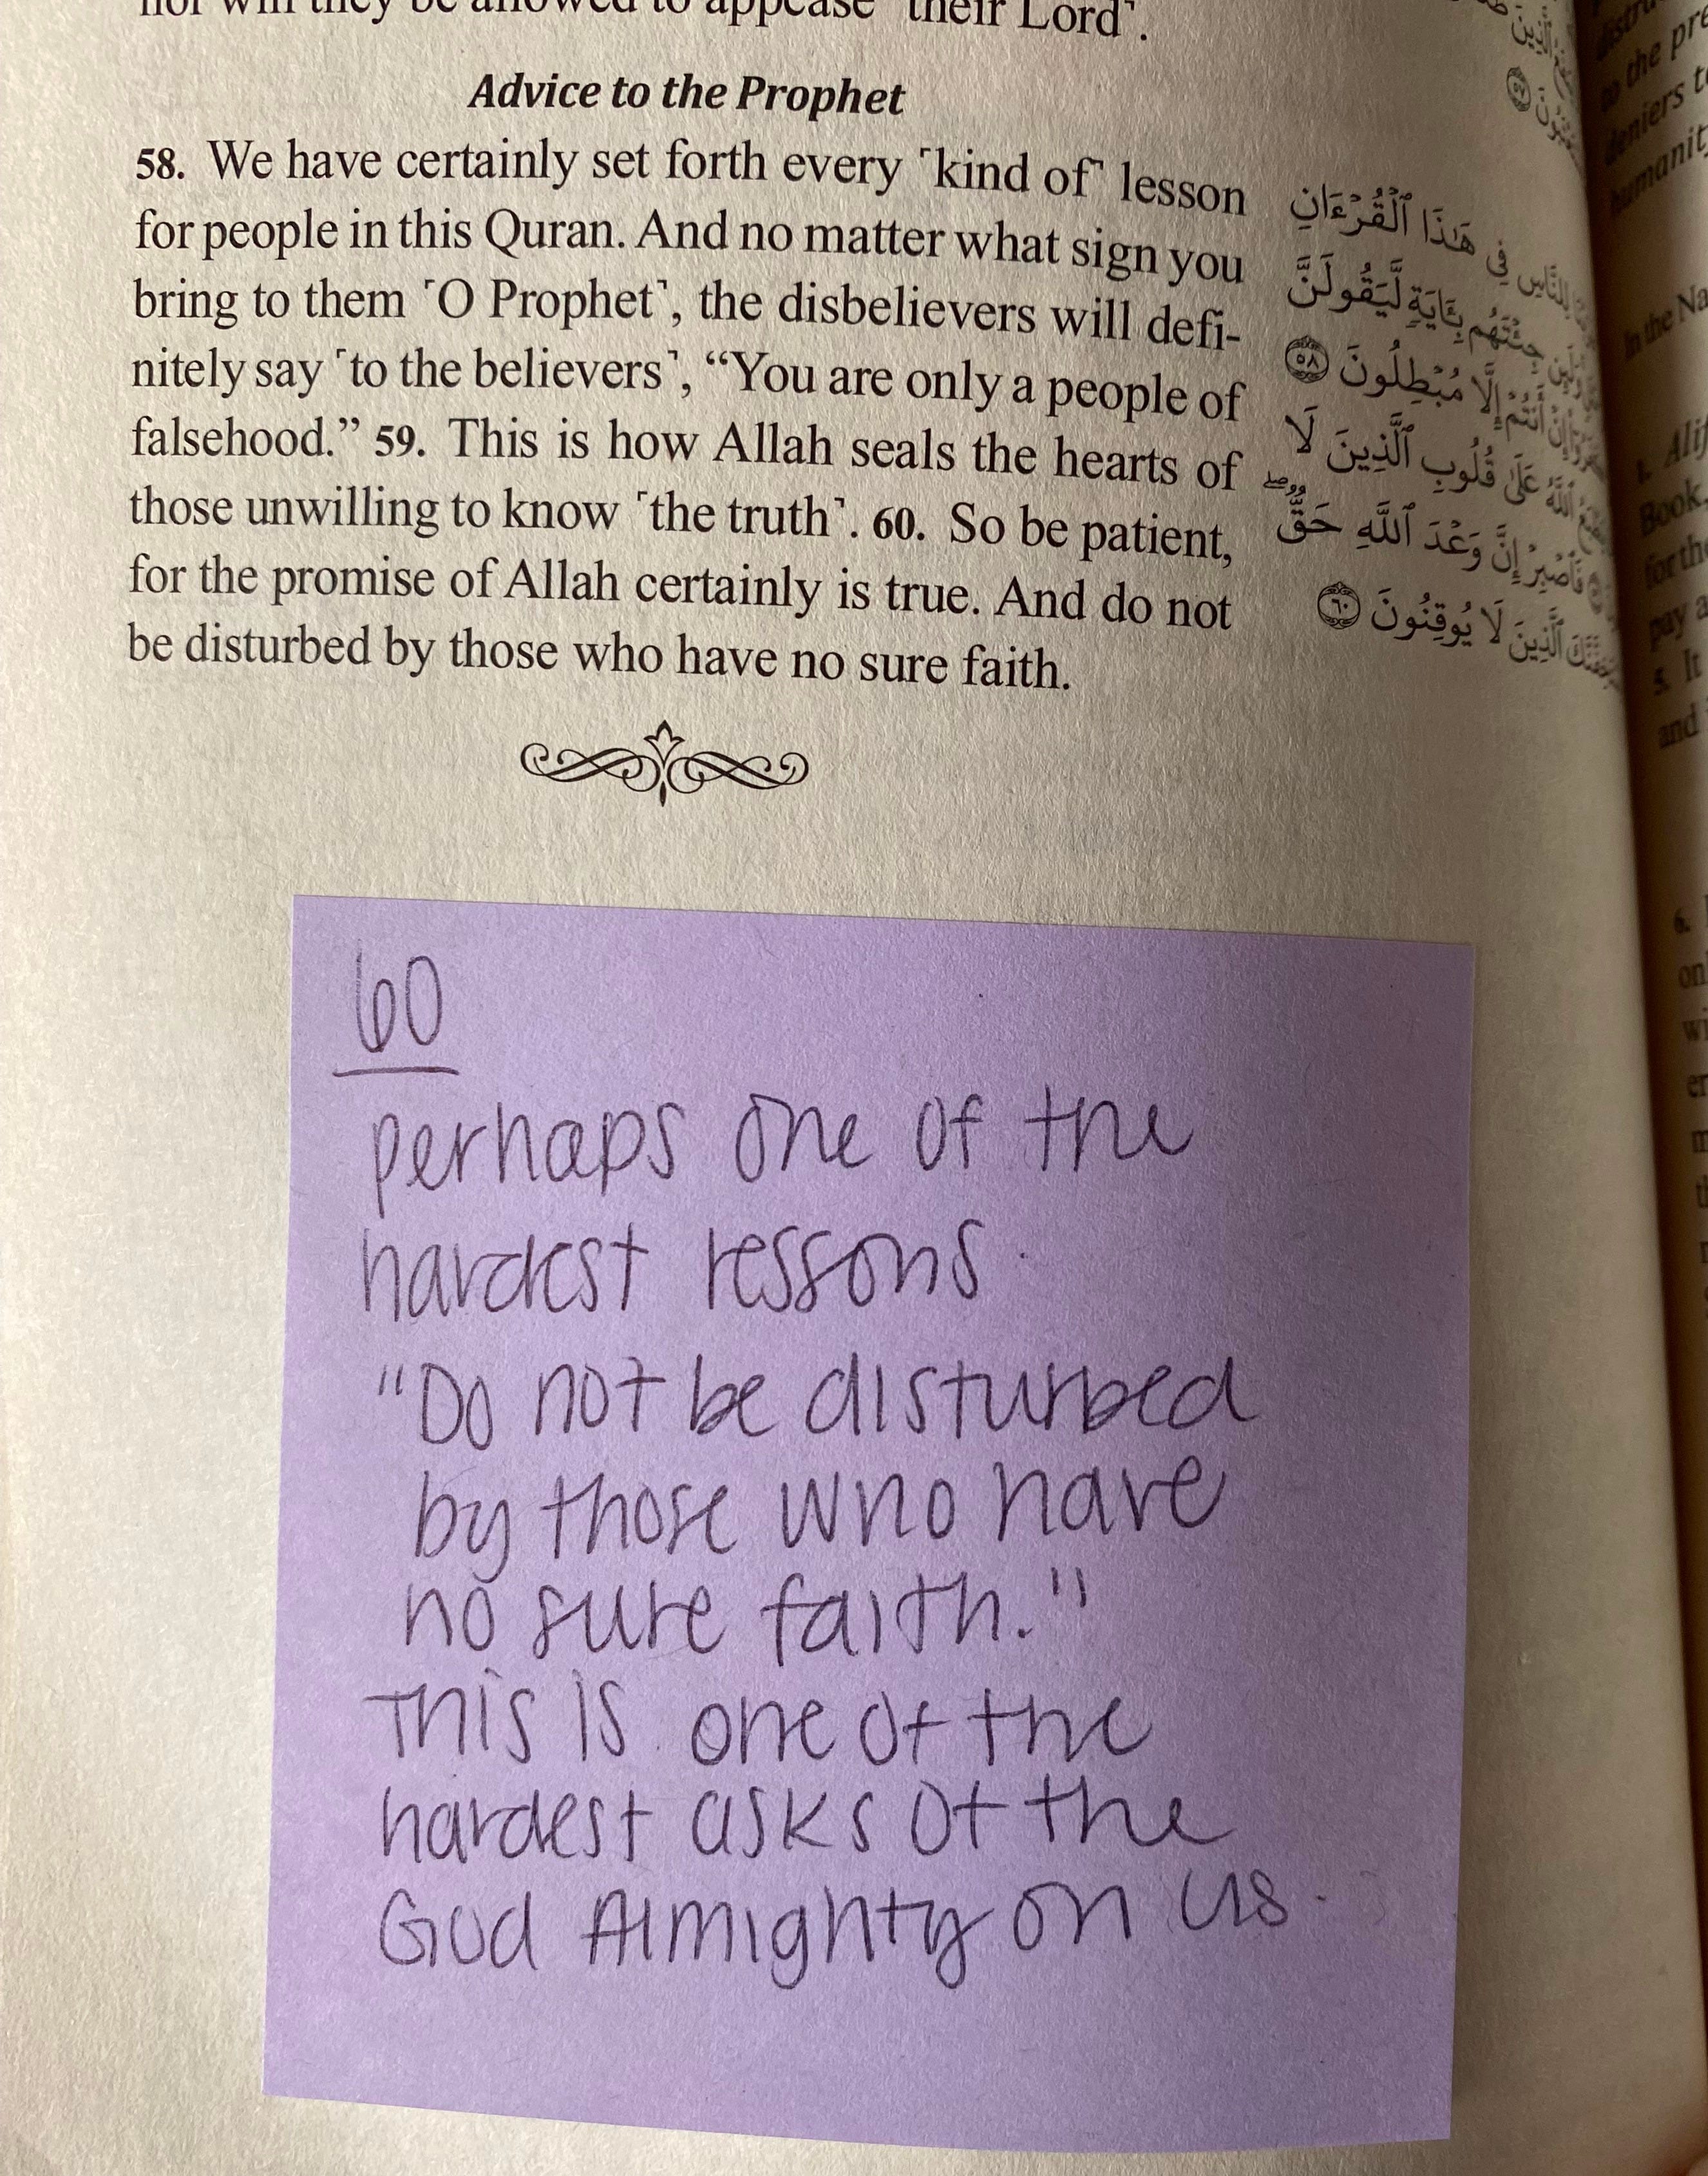 nor will they be allowed to appease ˹their Lord˺.
Advice to the Prophet
58. We have certainly set forth every ˹kind of˺ lesson
for people in this Quran. And no matter what sign you
bring to them ˹O Prophet˺, the disbelievers will defi-
nitely say ˹to the believers˺, “You are only a people of
falsehood.” 59. This is how Allah seals the hearts of
those unwilling to know ˹the truth˺. 60. So be patient,
for the promise of Allah certainly is true. And do not
be disturbed by those who have no sure faith.
لِلنَّاسِ فِى هَٰذَا ٱلْقُرْءَانِ
جِئْتَهُم بِـَٔايَةٍ لَّيَقُولَنَّ
أَنتُمْ إِلَّا مُبْطِلُونَ ٥٨
ٱللَّهُ عَلَىٰ قُلُوبِ ٱلَّذِينَ لَا
فَٱصْبِرْ إِنَّ وَعْدَ ٱللَّهِ حَقٌّۭ ۖ
ٱلَّذِينَ لَا يُوقِنُونَ ٦٠
60
perhaps one of the
hardest lessons.
"Do not be disturbed
by those who have
no sure faith."
This is one of the
hardest asks of the
God Almighty on us.
to the pre
deniers to
humanit
In the Na
1. Alif
Book
for the
pay a
5. It
and
6.